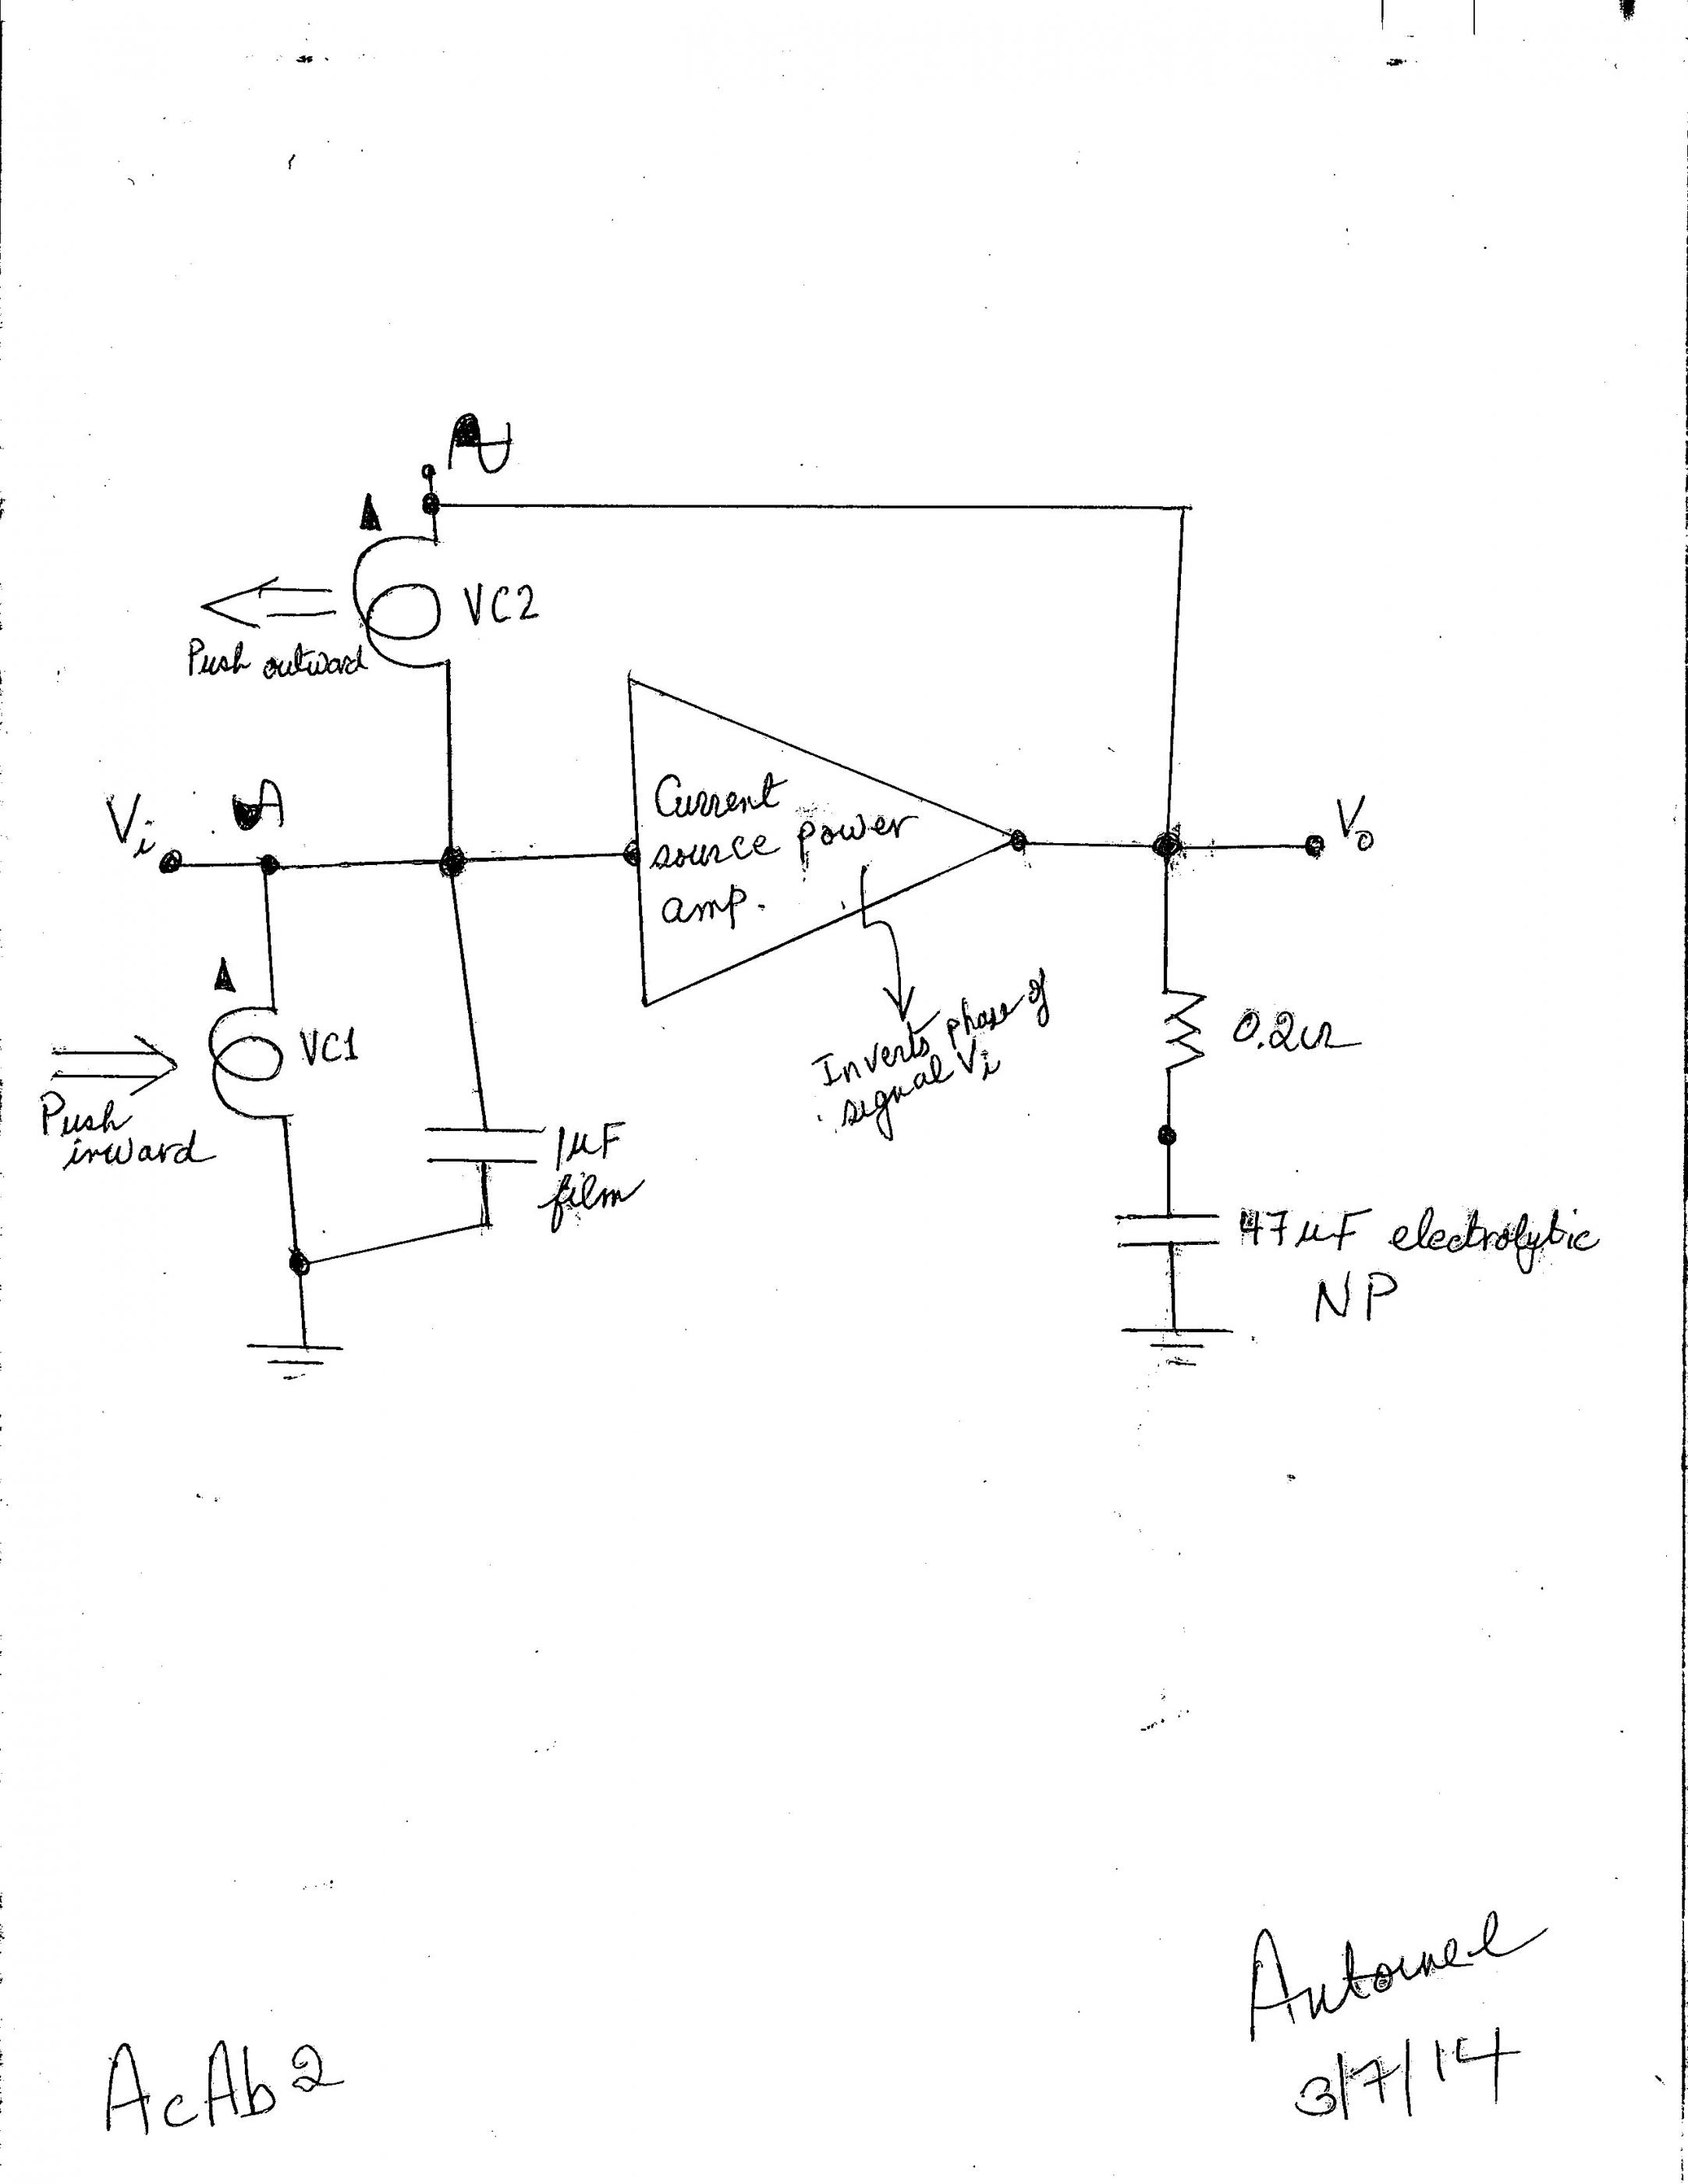 VC2
Push outward
Vi
Current
source power
amp.
Vo
VC1
Push
inward
Inverts phase of
signal Vi
0.2Ω
1μF
film
47μF electrolytic
NP
3/7/14
AcAb2